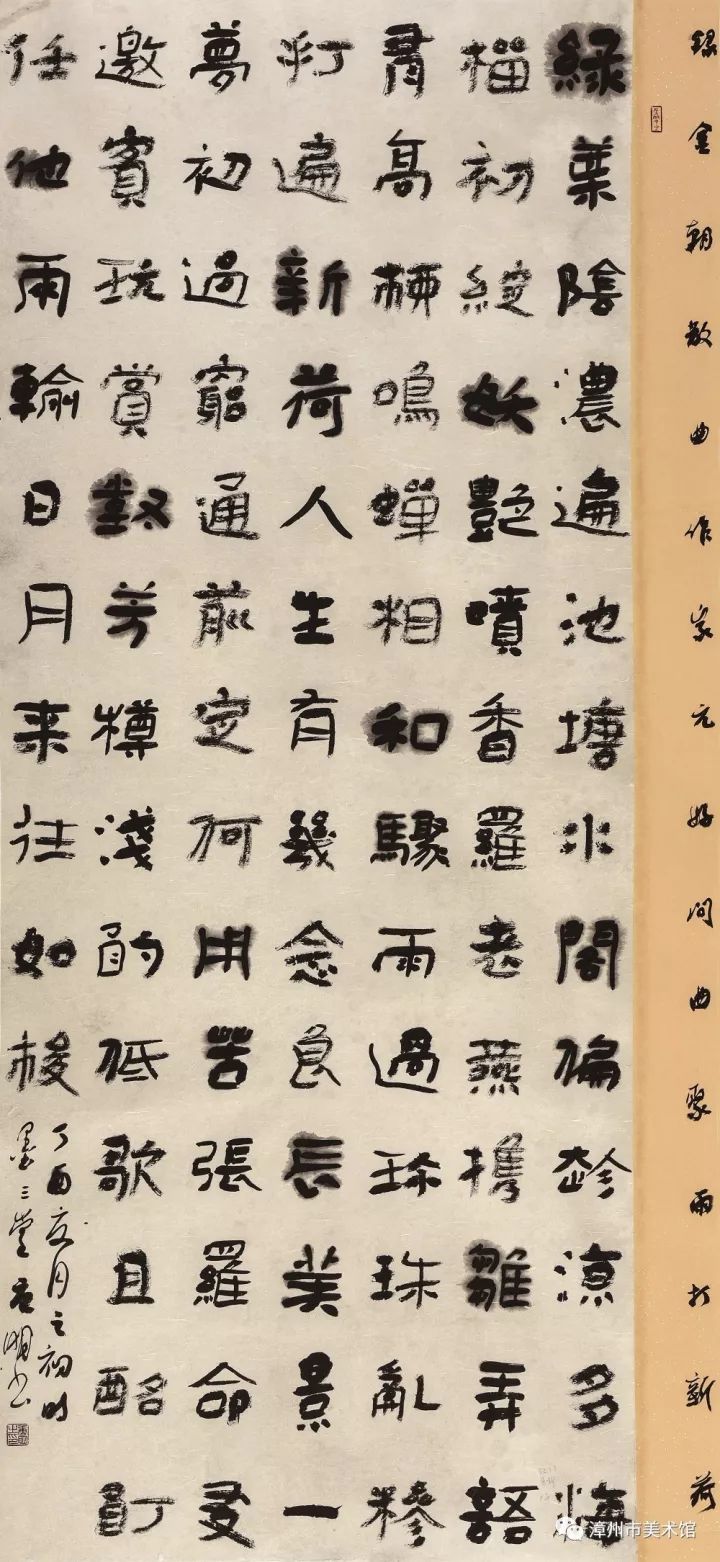 錄金朝散曲作家元好问曲聚雨打新荷
綠葉陰濃遍池塘水閣偏趁涼多海
榴初綻妖艷噴香羅老燕攜雛弄語
有高柳鳴蟬相和驟雨過珍珠亂糝
打遍新荷人生有幾念良辰美景一
夢初過窮通前定何用苦張羅命友
邀賓玩賞對芳樽淺酌低歌且酩酊
任他兩輪日月來往如梭
丁酉夏月之初時
漳州市美术馆